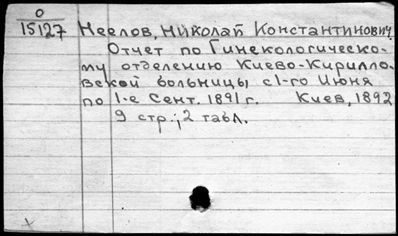 О
15127
Неелов, Николай Константинович.
Отчет по Гинекологическо-
му отделению Киево-Кирилло-
вской больницы с 1-го Июня
по 1-е Сент. 1891 г. Киев, 1892
9 стр.; 2 табл.